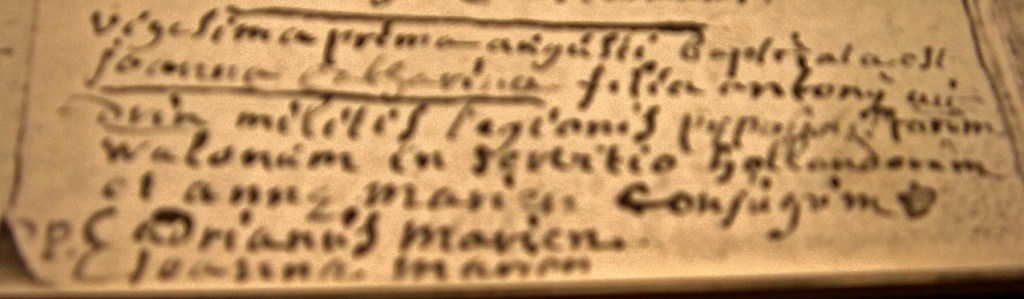 vigesima prima augusti baptizata est
joanna catharina filia antonij
militis legionis
walonum in servitio hollandorum
et annæ mariæ Conjugum
pp. Adrianus marien.
joanna marien